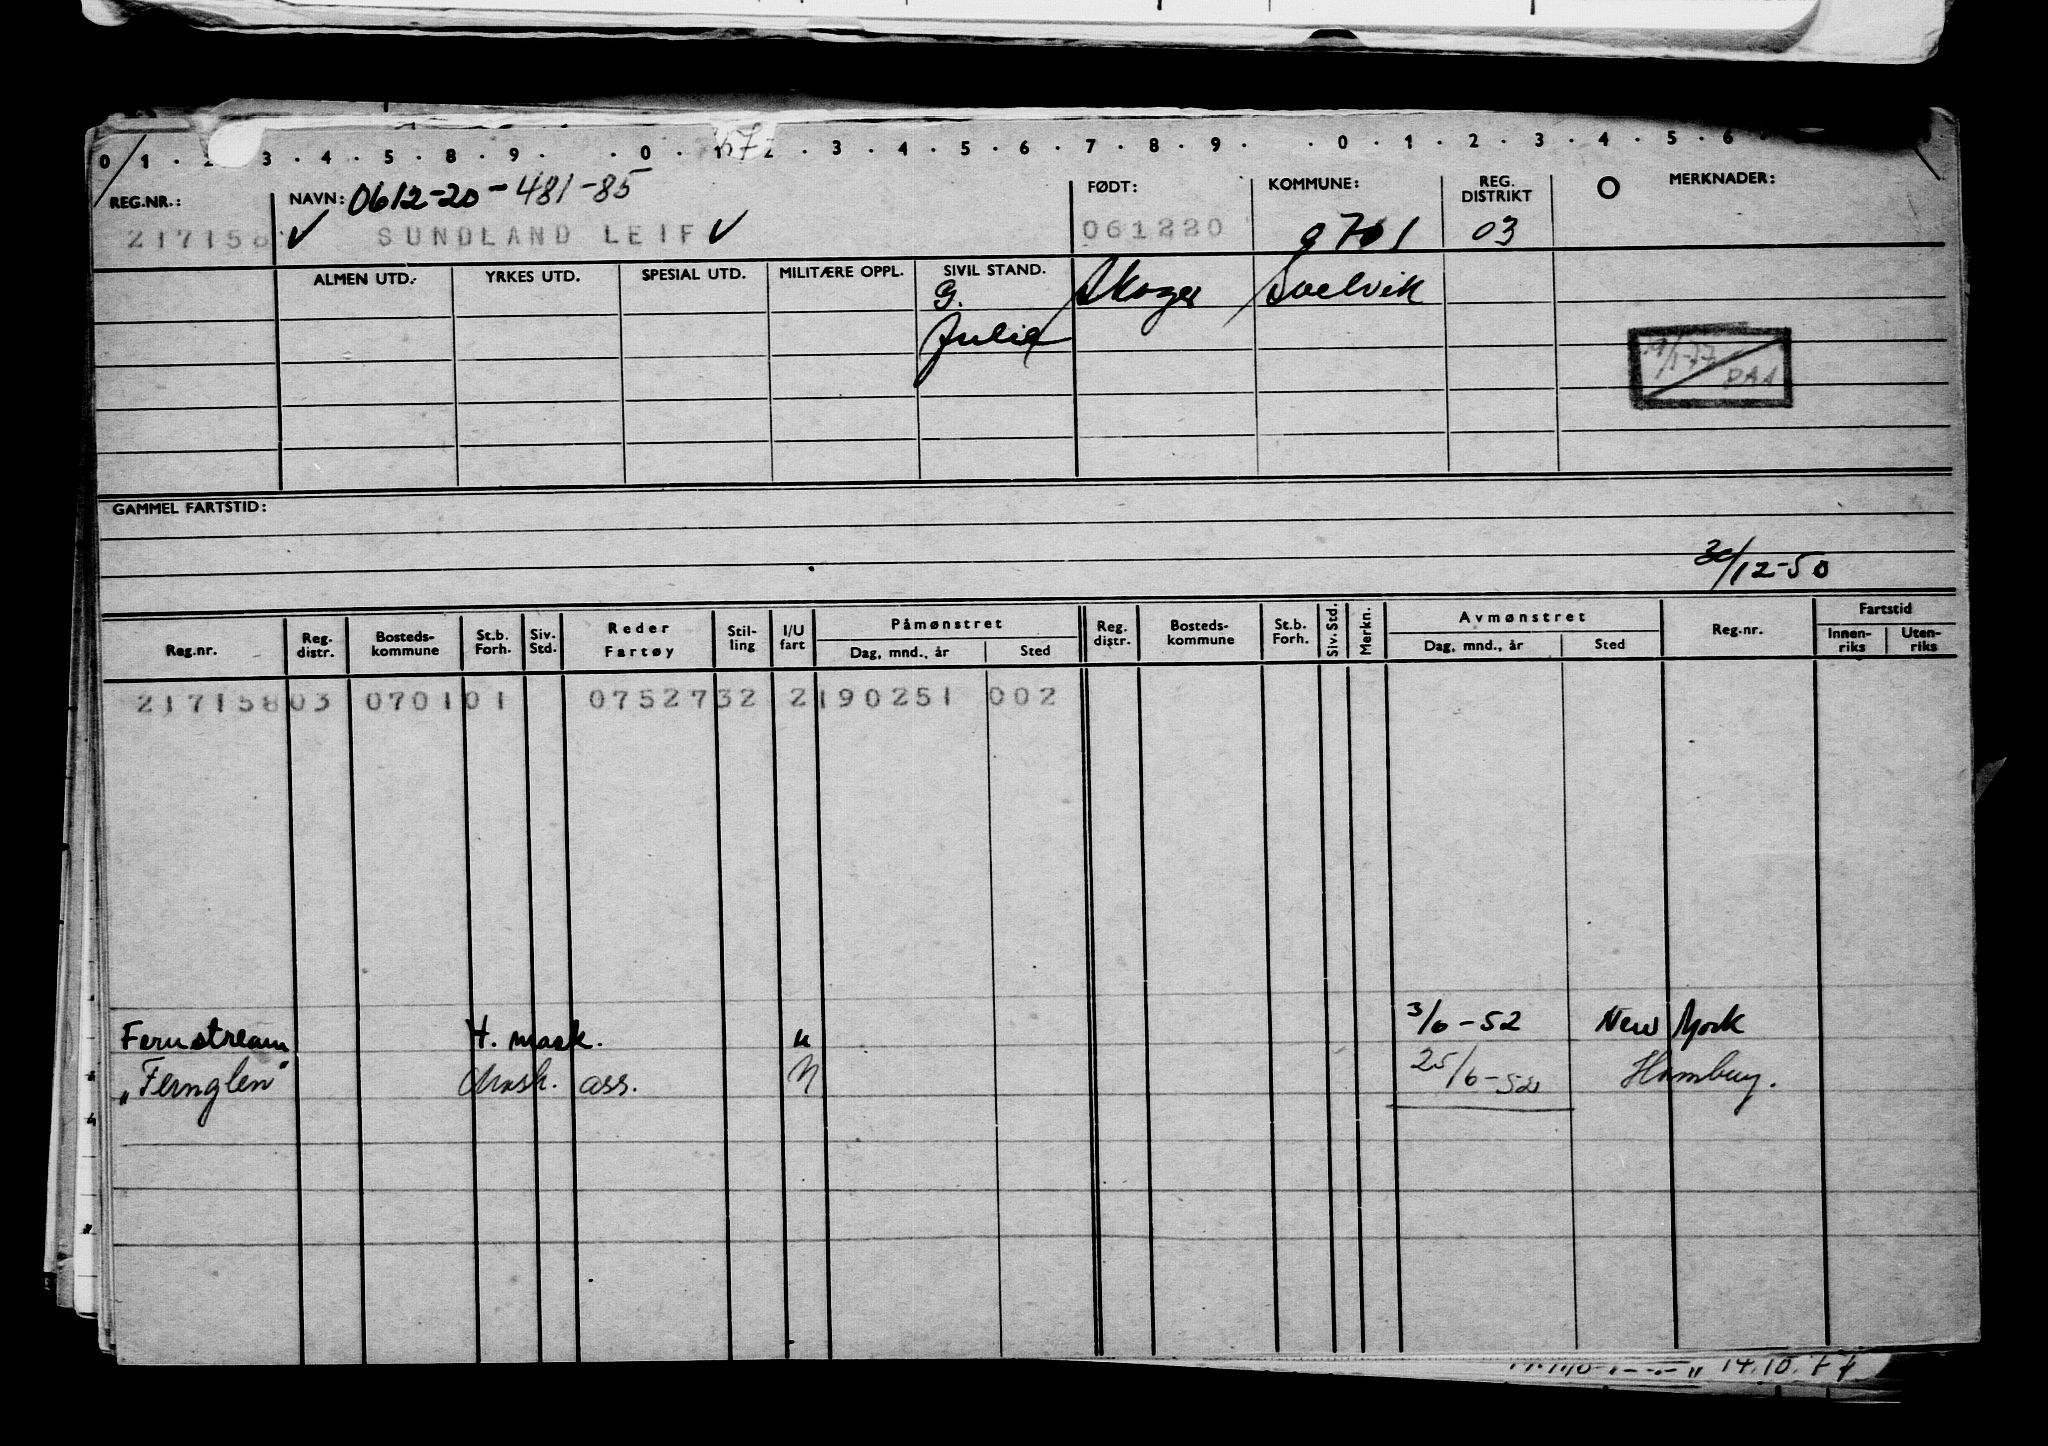 0 1 . 2 3 . 4 . 5 . 8 . 9 . . 0 . 1 2 . 3 . 4 . 5 . 6 . 7 . 8 . 9 . . 0 . 1 . 2 . 3 . 4 . 5 . 6
REG.NR.: NAVN: 0612-20-481-85 FØDT: KOMMUNE: REG. DISTRIKT MERKNADER:
217158 ✓ SUNDLAND LEIF ✓ 061220 0701 03
ALMEN UTD. YRKES UTD. SPESIAL UTD. MILITÆRE OPPL. SIVIL STAND.
G. Skoger Svelvik
Julie
GAMMEL FARTSTID:
30/12-50
Reg.nr. Reg. distr. Bosteds- kommune St.b. Forh. Siv. Std. Reder Fartøy Stil- ling I/U fart Påmønstret Dag, mnd., år Sted Reg. distr. Bosteds- kommune St.b. Forh. Siv. Std. Merkn. Avmønstret Dag, mnd., år Sted Reg.nr. Fartstid Innen- riks Uten- riks
217158 03 0701 01 07527 32 2 190251 002
Fernstream H. mask. u 3/6-52 New York
"Fernglen" Mask. ass. U 25/6-52 Hamburg.
14.10.74